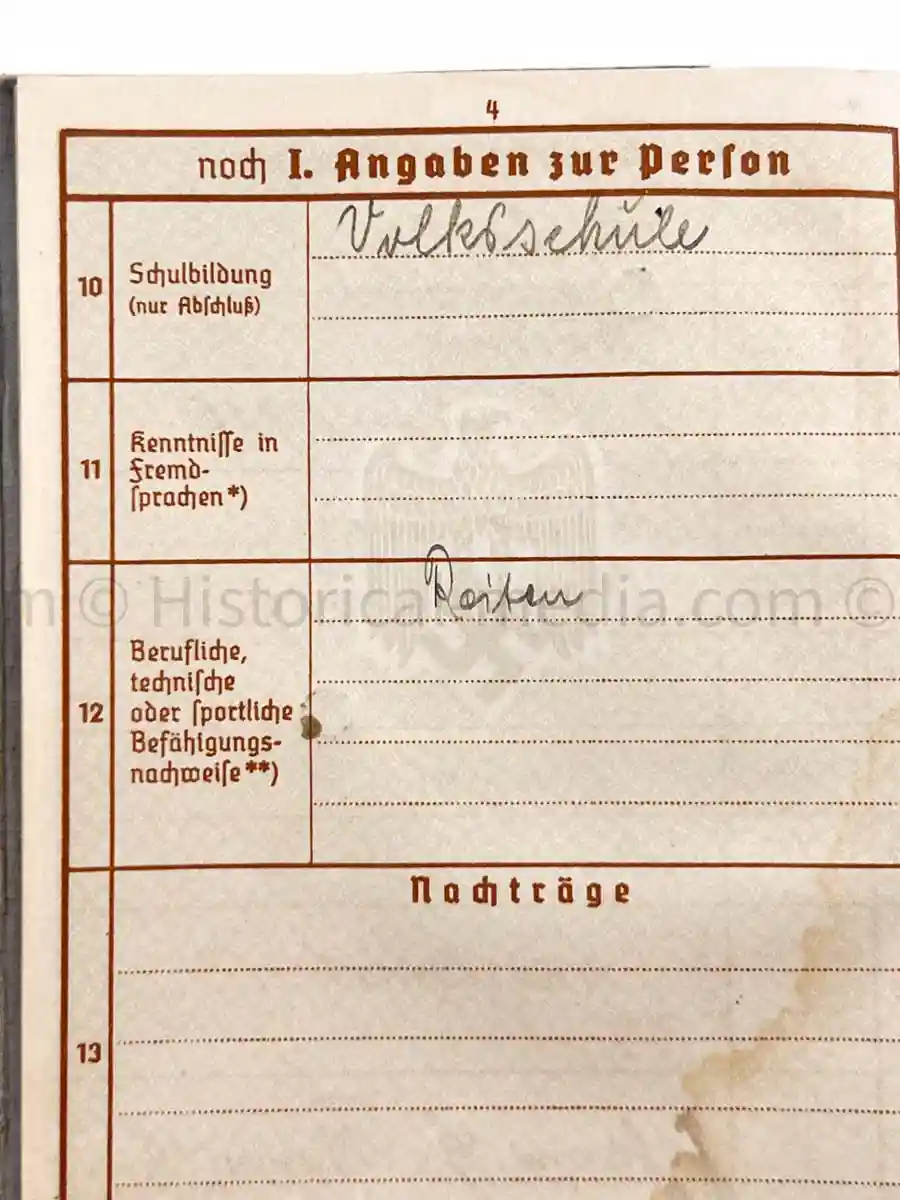 4
noch I. Angaben zur Person
10
Schulbildung
(nur Abschluß)
Volksschule
11
Kenntnisse in
Fremd-
sprachen*)
12
Berufliche,
technische
oder sportliche
Befähigungs-
nachweise**)
Reiten
m © HistoricalMedia.com ©
Nachträge
13